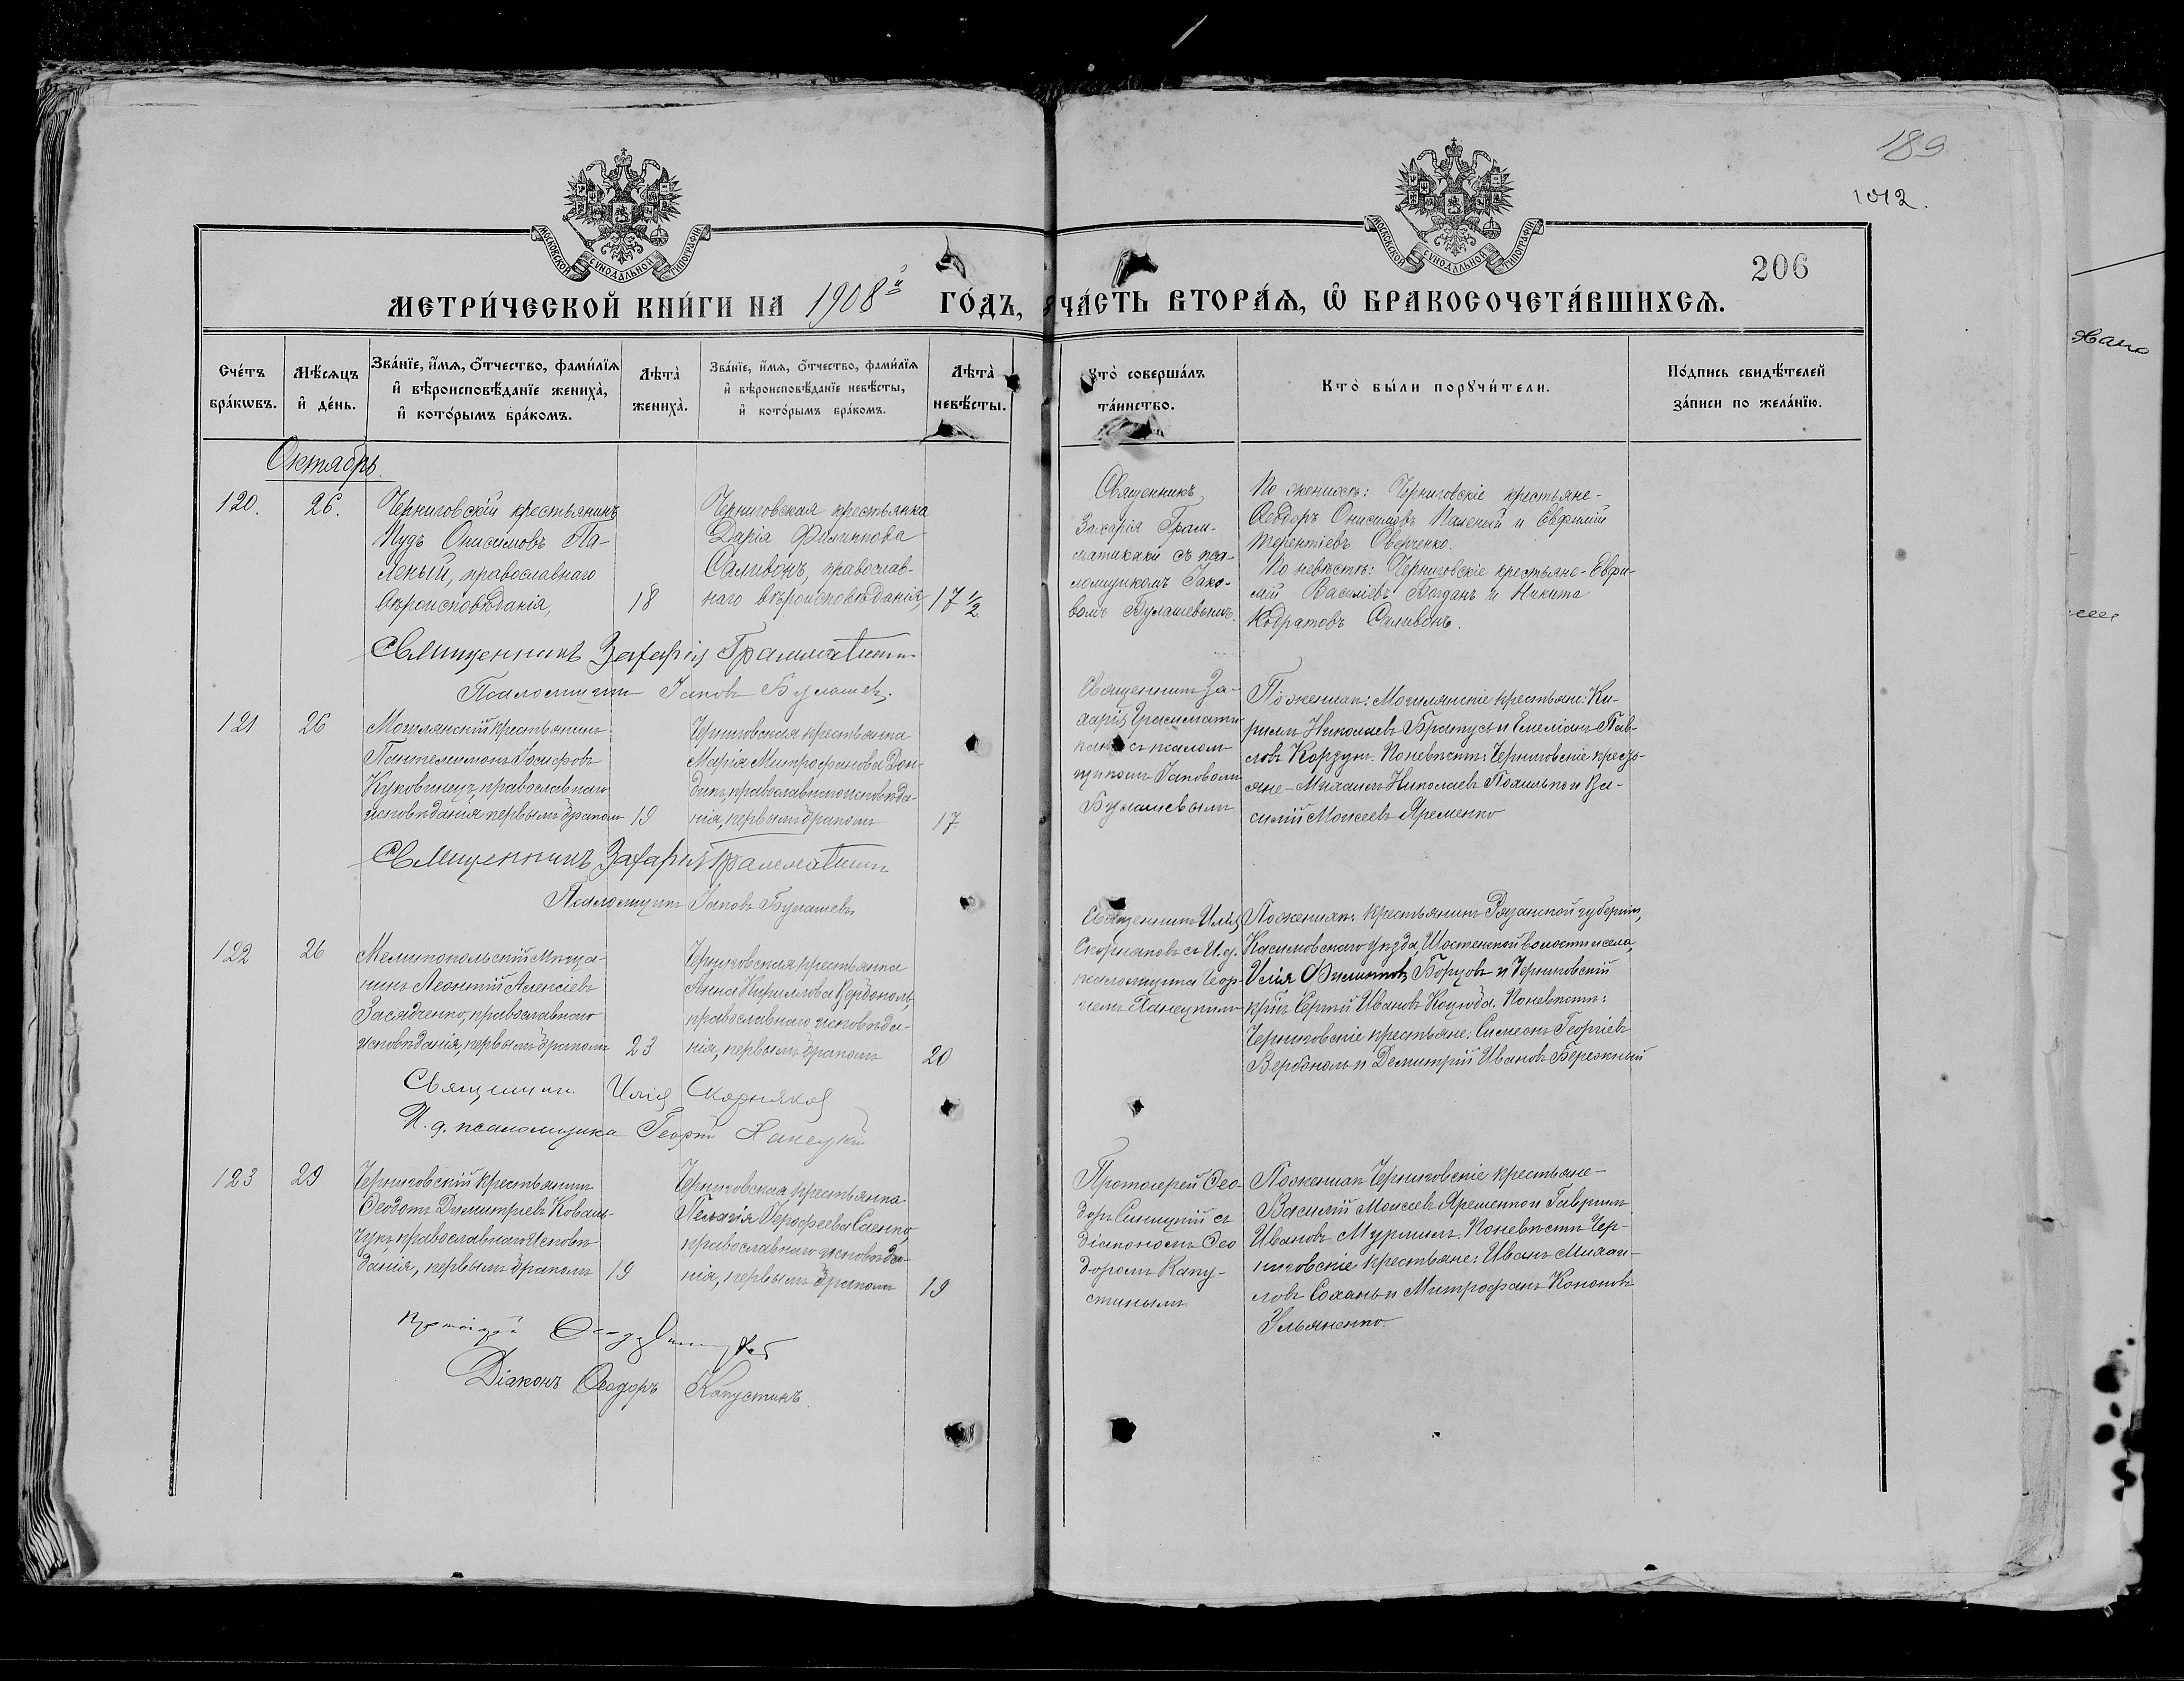 189
1012.
206
МОСКОВСКОЙ СУНОДАЛЬНОЙ ТИПОГРАФІИ
МОСКОВСКОЙ СУНОДАЛЬНОЙ ТИПОГРАФІИ
МЕТРИ́ЧЕСКОЙ КНИ́ГИ НА 1908й ГО́ДЪ, ЧА́СТЬ ВТОРА́Ѧ, Ѽ БРАКОСОЧЕТА́ВШИХСѦ.
Сче́тъ бра́кѡвъ.
Мѣ́сѧцъ и҆ де́нь.
Зва́нїе, и҆́мѧ, ѻ҆́тчество, фами́лїѧ
и҆ вѣроисповѣ́данїе жениха̀,
и҆ кото́рымъ бра́комъ.
Лѣта̀ жениха̀.
Зва́нїе, и҆́мѧ, ѻ҆́тчество, фами́лїѧ
и҆ вѣроисповѣ́данїе невѣ́сты,
и҆ кото́рымъ бра́комъ.
Лѣта̀ невѣ́сты.
Кто̀ соверша́лъ та́инство.
Кто̀ бы́ли порꙋчи́тели.
По́дпись свидѣ́телей за́писи по жела́нїю.
Октябрь.
120.
26.
Черниговскій крестьянинъ
Іудъ Онисимовъ Па-
леный, православнаго
вѣроисповѣданія,
18
Черниговская крестьянка
Дарія Филиппова
Саливонъ, православ-
наго вѣроисповѣданія,
17 1/2
Священникъ
Захарія Грам-
матикаки съ пса-
ломщикомъ Іако-
вомъ Булашевымъ.
По женихѣ: Черниговскіе крестьяне-
Ѳеодоръ Онисимовъ Паленый и Евфимій
Терентіевъ Оверченко.
По невѣстѣ: Черниговскіе крестьяне - Евфи-
мій Василіевъ Богданъ и Никита
Кодратовъ Саливонъ.
Священникъ Захарія
Псаломщикъ Іаковъ Булашевъ.
121
26
Могилянскій крестьянинъ
Пантелимонъ Іосифовъ
Куковинецъ, православнаго
исповѣданія, первымъ бракомъ
19
Черниговская крестьянка
Марія Митрофанова Дон-
дикъ, православнаго исповѣда-
нія, первымъ бракомъ
17
Священникъ За-
харія Грамматик-
каки съ псалом-
щикомъ Іаковомъ
Булашевымъ
По женихѣ: Могилянскіе крестьяне: Ки-
риллъ Николаевъ Братусь и Емеліанъ Пав-
ловъ Корзунъ. По невѣстѣ: Черниговскіе кресть-
яне - Михаилъ Николаевъ Похилько и Ва-
силій Моисеевъ Яременко
Священникъ Захарія
Псаломщикъ Іаковъ Булашевъ
122
26
Мелитопольскій мѣща-
нинъ Леонтій Алексіевъ
Засядченко, православнаго
исповѣданія, первымъ бракомъ
23
Черниговская крестьянка
Анна Кириллова Вербополь,
православнаго исповѣда-
нія, первымъ бракомъ
20
Священникъ Илія
Скорняковъ съ И. д.
псаломщика Геор-
гіемъ Ханецкимъ
По женихѣ: Крестьянинъ Рязанской губерніи,
Касимовскаго уѣзда, волости и села,
Илія Филиповъ Борзовъ и Черниговскій
кр-нъ Сергій Ивановъ Коцюба. По невѣстѣ:
Черниговскіе крестьяне: Симеонъ Георгіевъ
Вербополь и Димитрій Ивановъ Бережный
Священникъ Илія Скорняковъ
И. д. псаломщика Георгій Ханецкій
123
29
Черниговскій крестьянинъ
Ѳеодотъ Димитріевъ Коваль-
чукъ, православнаго исповѣ-
данія, первымъ бракомъ
19
Черниговская крестьянка
Пелагія Іерофеева Саенко,
православнаго исповѣда-
нія, первымъ бракомъ
19
Протоіерей Ѳео-
доръ Синицкій съ
діакономъ Ѳео
доромъ Капу-
стинымъ
По женихѣ Черниговскіе крестьяне-
Василій Моисеевъ Яременко и Гавріилъ
Ивановъ По невѣстѣ Чер-
ниговскіе крестьяне: Иванъ Михаи-
ловъ Сохань и Митрофанъ Кононовъ
Ульяненко.
Протоіерей
Діаконъ Ѳеодоръ Капустинъ.